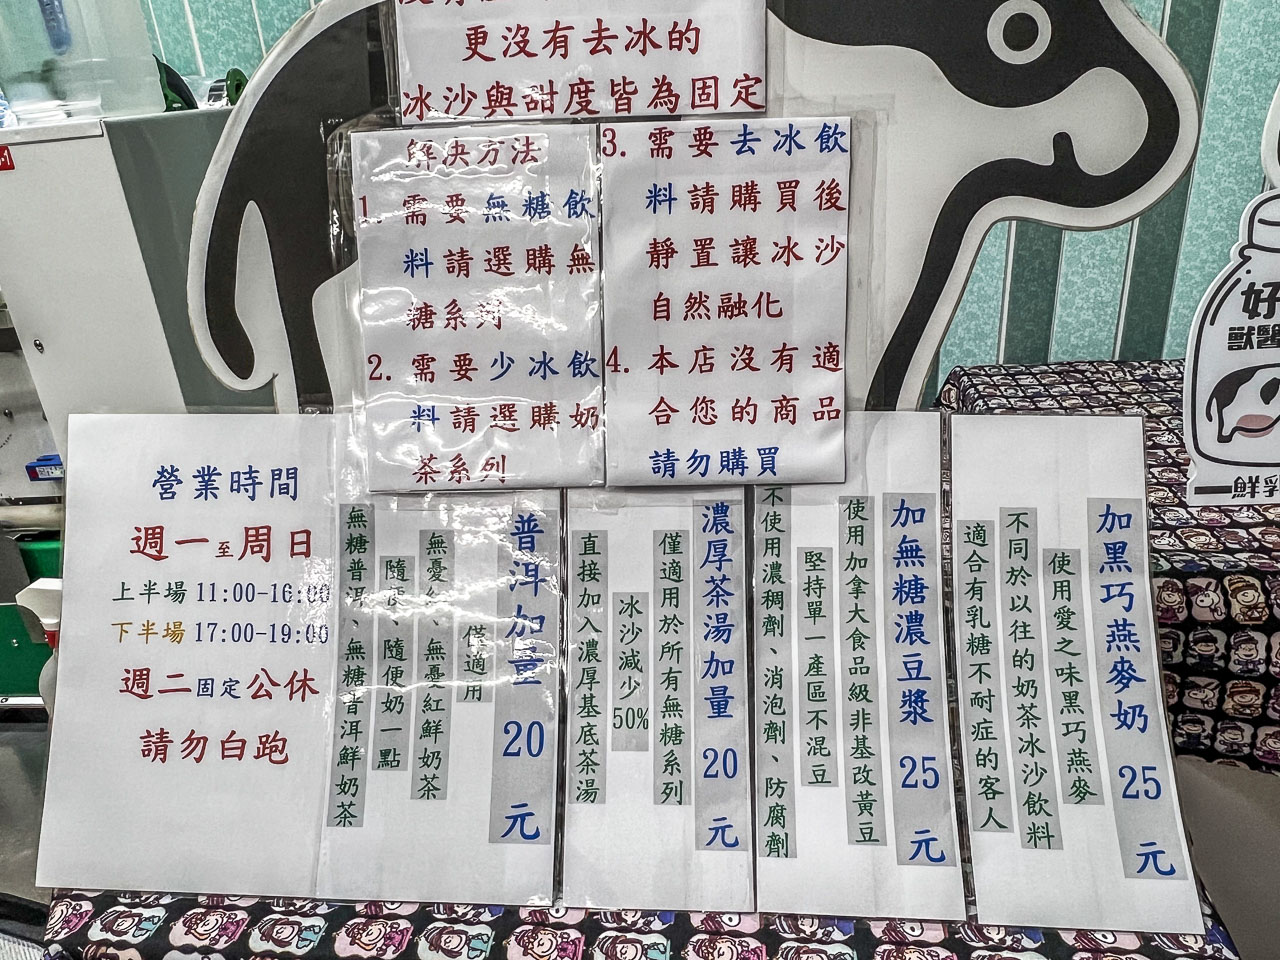 更沒有去冰的
冰沙與甜度皆為固定
解決方法
1. 需要無糖飲
料請選購無
糖系列
2. 需要少冰飲
料請選購奶
茶系列
3. 需要去冰飲
料請購買後
靜置讓冰沙
自然融化
4. 本店沒有適
合您的商品
請勿購買
營業時間
週一至周日
上半場 11:00-16:00
下半場 17:00-19:00
週二固定公休
請勿白跑
普洱加量 20 元
僅適用
無憂紅、無憂紅鮮奶茶
隨便、隨便奶一點
無糖普洱、無糖普洱鮮奶茶
濃厚茶湯加量 20 元
僅適用於所有無糖系列
冰沙減少50%
直接加入濃厚基底茶湯
加無糖濃豆漿 25 元
使用加拿大食品級非基改黃豆
堅持單一產區不混豆
不使用濃稠劑、消泡劑、防腐劑
加黑巧燕麥奶 25 元
使用愛之味黑巧燕麥
不同於以往的奶茶冰沙飲料
適合有乳糖不耐症的客人
好
獸醫